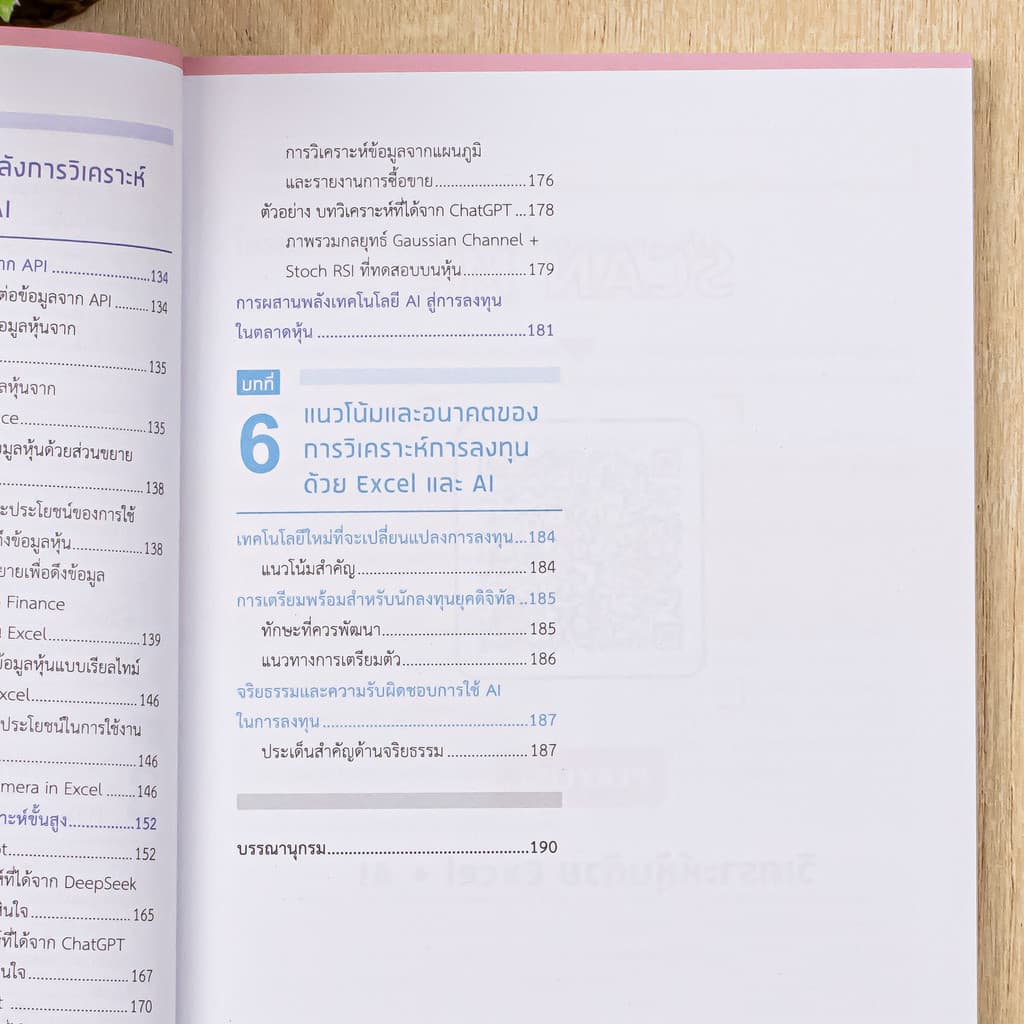 ลังการวิเคราะห์
AI
าก API ...........................134
ต่อข้อมูลจาก API .........134
อมูลหุ้นจาก
........................................135
ลหุ้นจาก
ce...................................135
อมูลหุ้นด้วยส่วนขยาย
........................................138
ะประโยชน์ของการใช้
ึงข้อมูลหุ้น...................138
ยายเพื่อดึงข้อมูล
Finance
Excel.........................139
ข้อมูลหุ้นแบบเรียลไทม์
xcel.............................146
ประโยชน์ในการใช้งาน
........................................146
mera in Excel ........146
าะห์ขั้นสูง..................152
ot..................................152
ห์ที่ได้จาก DeepSeek
สินใจ...........................165
ที่ได้จาก ChatGPT
นใจ.............................167
t ...................................170
การวิเคราะห์ข้อมูลจากแผนภูมิ
และรายงานการซื้อขาย.......................176
ตัวอย่าง บทวิเคราะห์ที่ได้จาก ChatGPT ...178
ภาพรวมกลยุทธ์ Gaussian Channel +
Stoch RSI ที่ทดสอบบนหุ้น................179
การผสานพลังเทคโนโลยี AI สู่การลงทุน
ในตลาดหุ้น .....................................................181
บทที่
6
แนวโน้มและอนาคตของ
การวิเคราะห์การลงทุน
ด้วย Excel และ AI
เทคโนโลยีใหม่ที่จะเปลี่ยนแปลงการลงทุน...184
แนวโน้มสำคัญ...........................................184
การเตรียมพร้อมสำหรับนักลงทุนยุคดิจิทัล ..185
ทักษะที่ควรพัฒนา.....................................185
แนวทางการเตรียมตัว................................186
จริยธรรมและความรับผิดชอบการใช้ AI
ในการลงทุน....................................................187
ประเด็นสำคัญด้านจริยธรรม.....................187
บรรณานุกรม...................................................190